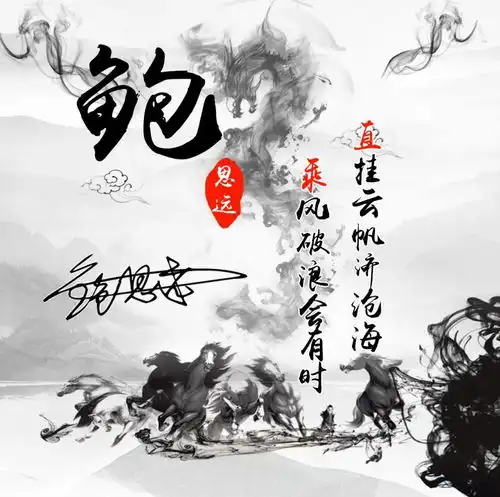 鲍
思远
鲍思远
乘风破浪会有时
直挂云帆济沧海